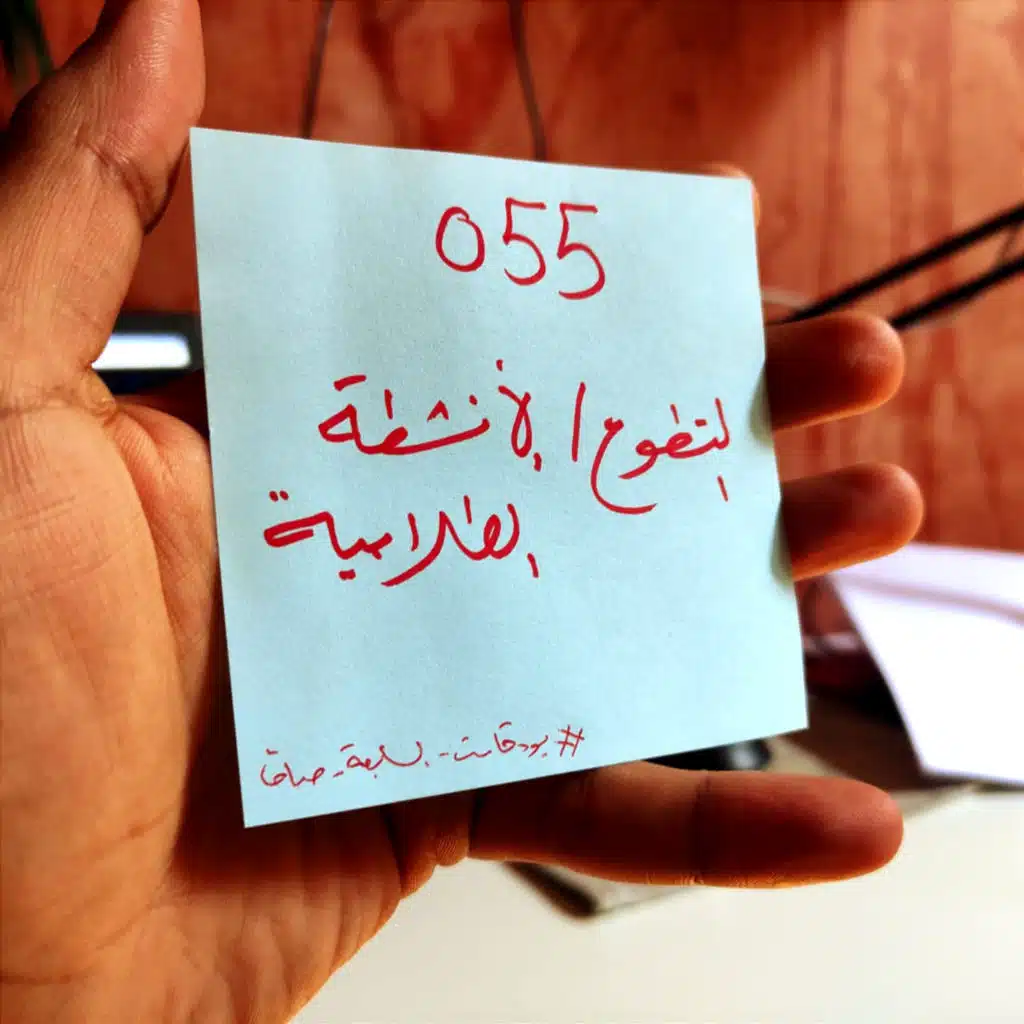 055
التطوع / الأنشطة
الطلابية
#بودقاست_السابعة_صباحا